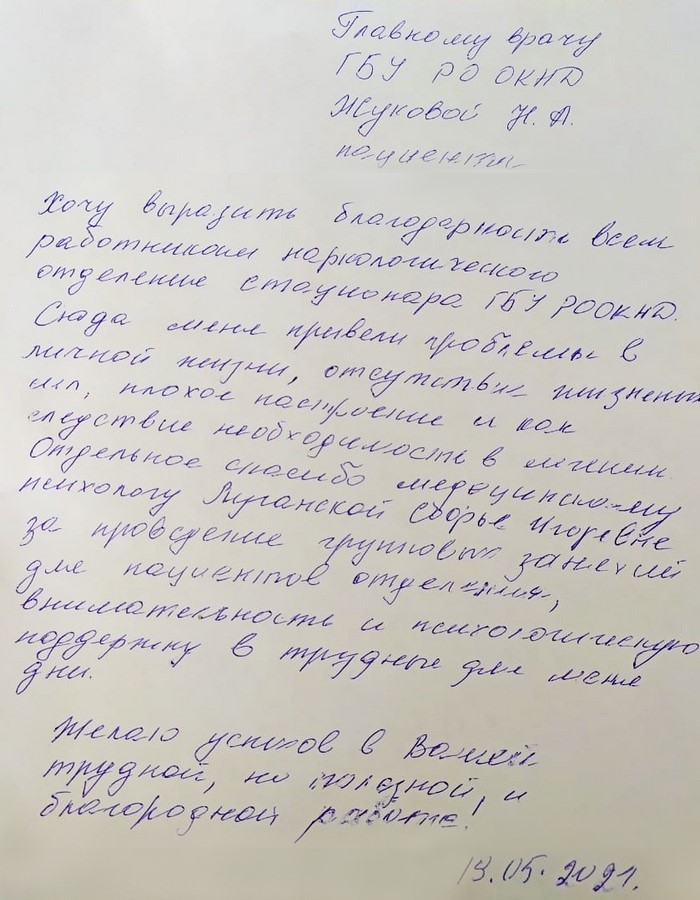 Главному врачу
ГБУ РО ОКНД
Жуковой Н. А.
пациента
Хочу выразить благодарность всем
работникам наркологического
отделение стационара ГБУ РООКНД.
Сюда меня привели проблемы в
личной жизни, отсутствие жизненых
сил, плохое настроение и как
следствие необходимость в лечении.
Отдельное спасибо медицинскому
психологу Луганской Софье Игоревне
за проведение групповых занятий
для пациентов отделения,
внимательность и психологическую
поддержку в трудные для меня
дни.
Желаю успехов в Вашей
трудной, но полезной, и
благородной работе!
13.05.2021.